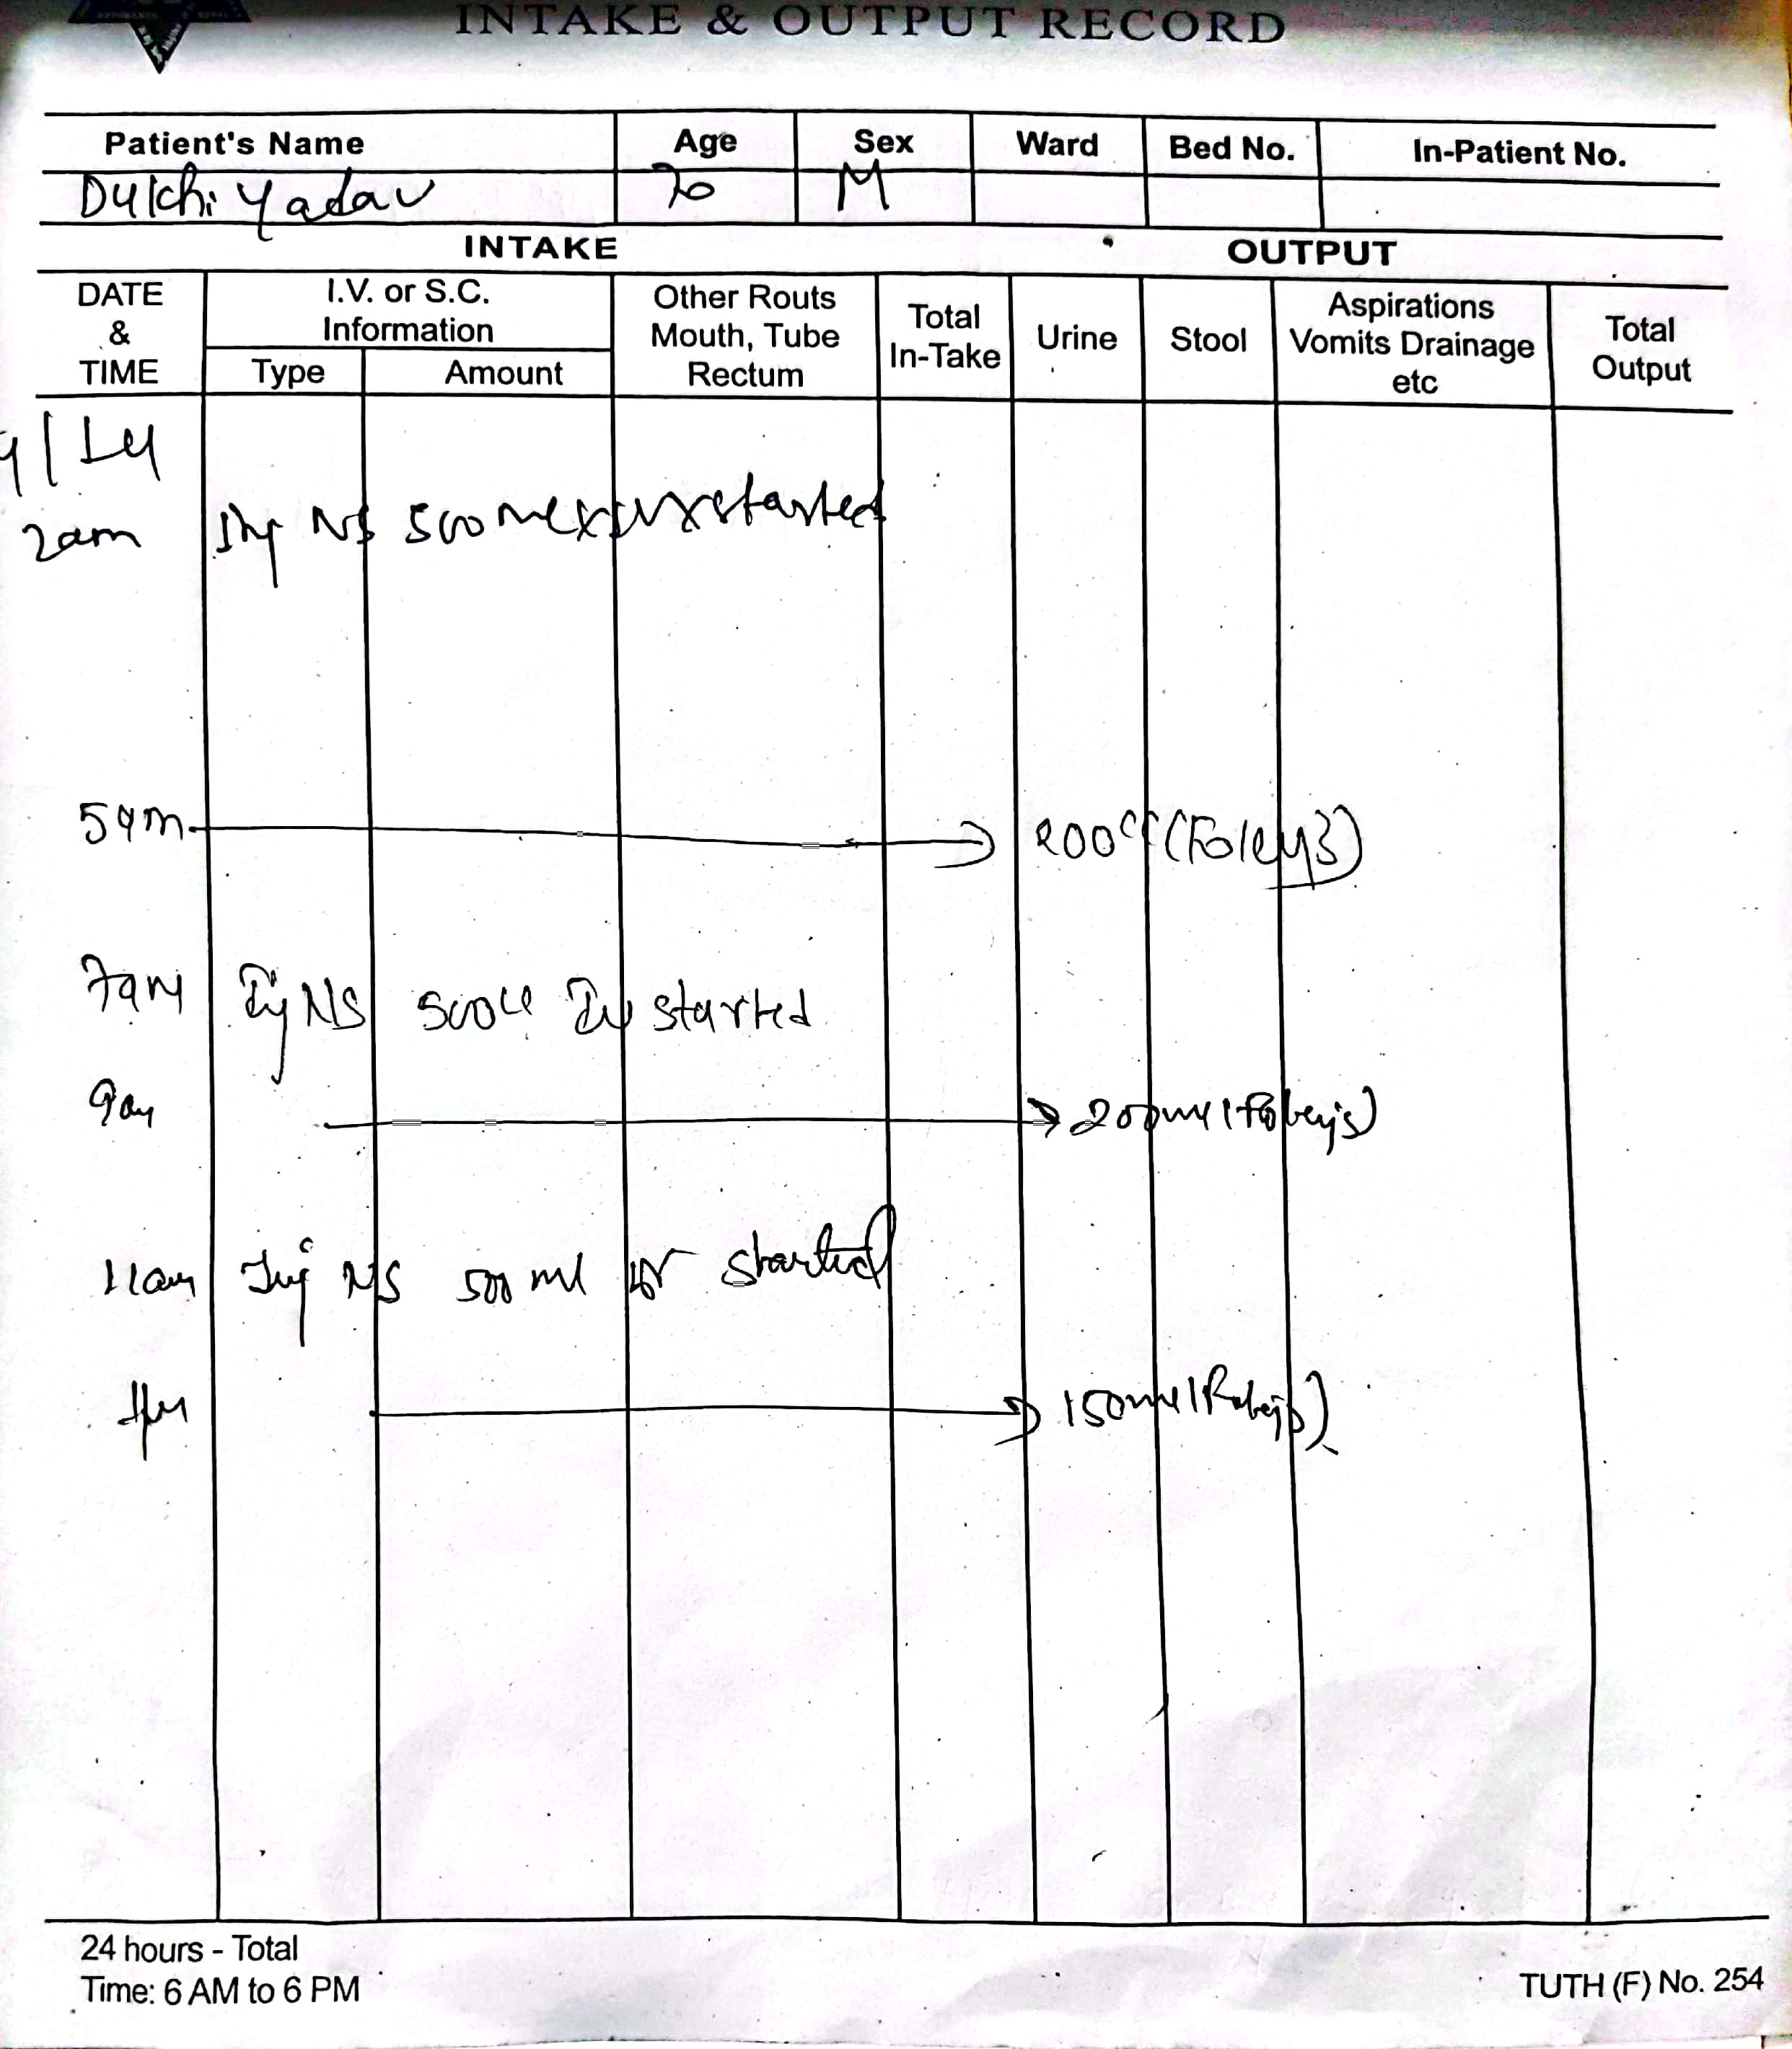 INTAKE & OUTPUT RECORD
Patient's Name Age Sex Ward Bed No. In-Patient No.
Dulchi Yadav 70 M
INTAKE OUTPUT
DATE & TIME
I.V. or S.C. Information
Type Amount
Other Routs Mouth, Tube Rectum
Total In-Take
Urine
Stool
Aspirations Vomits Drainage etc
Total Output
/14
2am Inj NS 500ml x IV x started
5am 200cc (Foley's)
7am Inj NS 500cc IV started
9am 200ml (Foley's)
11am Inj NS 500 ml IV started
1pm 150ml (Foley's)
24 hours - Total
Time: 6 AM to 6 PM
TUTH (F) No. 254